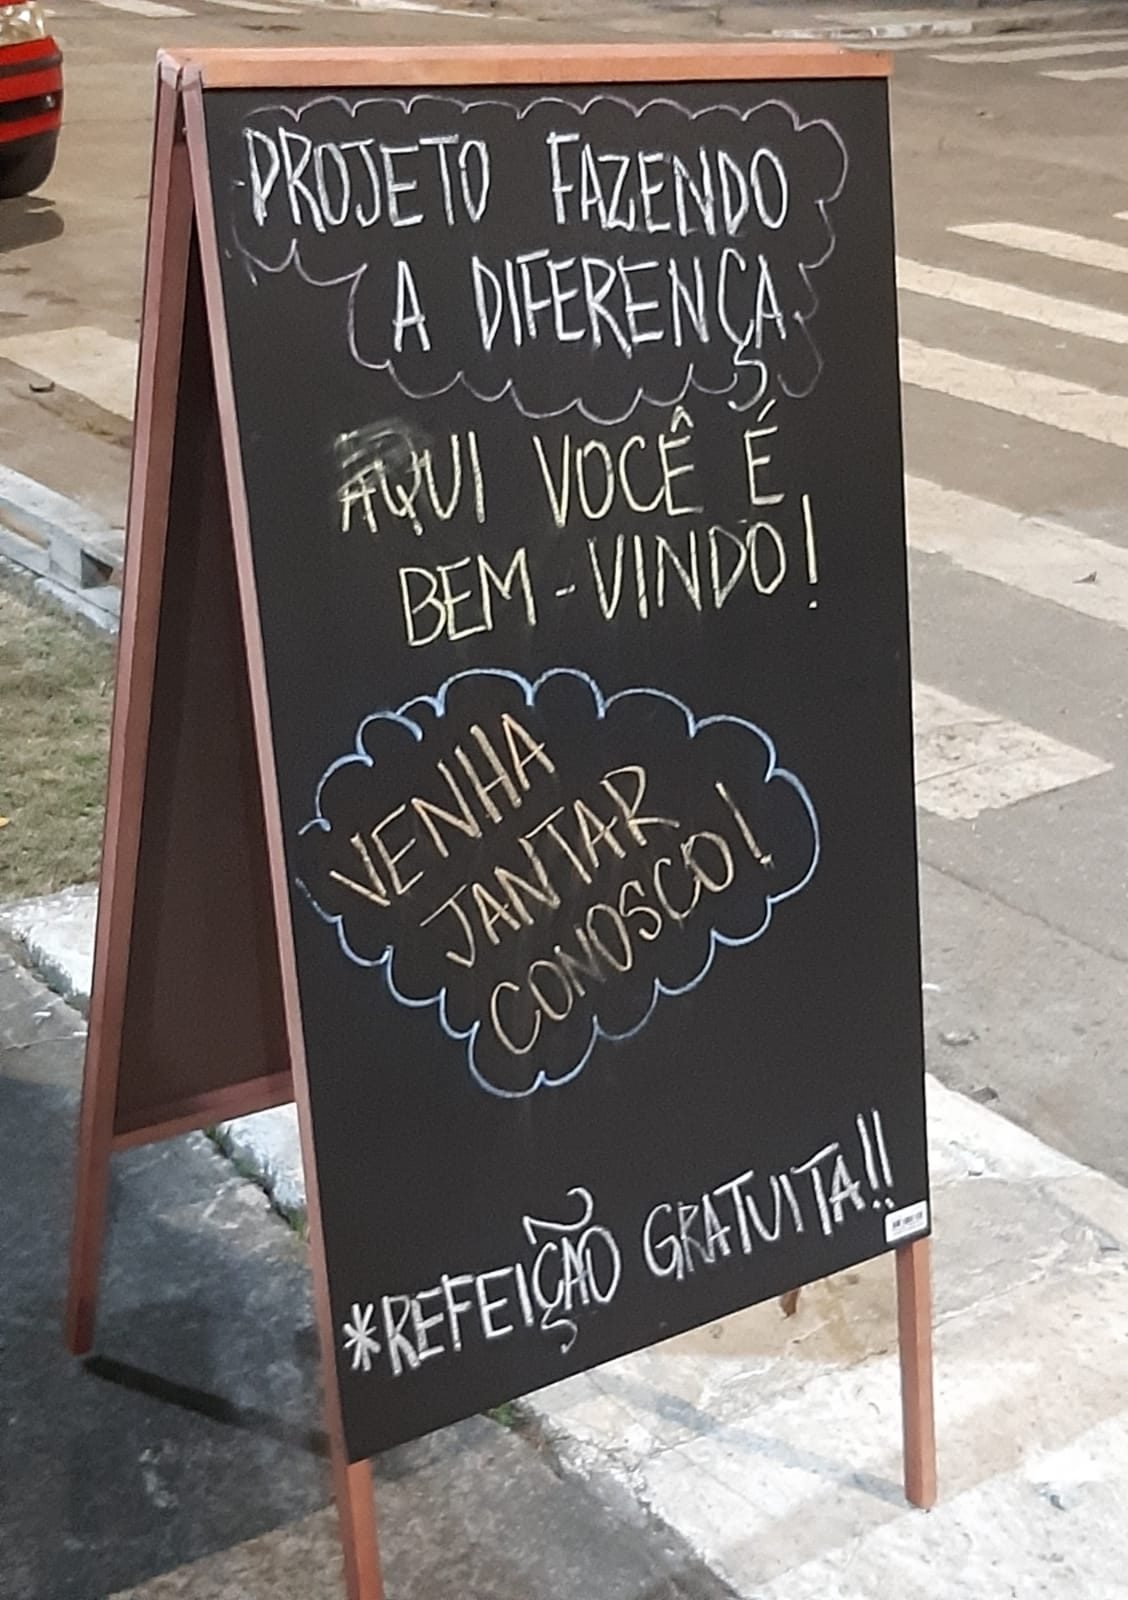 PROJETO FAZENDO
A DIFERENÇA
AQUI VOCÊ É
BEM-VINDO!
VENHA
JANTAR
CONOSCO!
*REFEIÇÃO GRATUITA!!